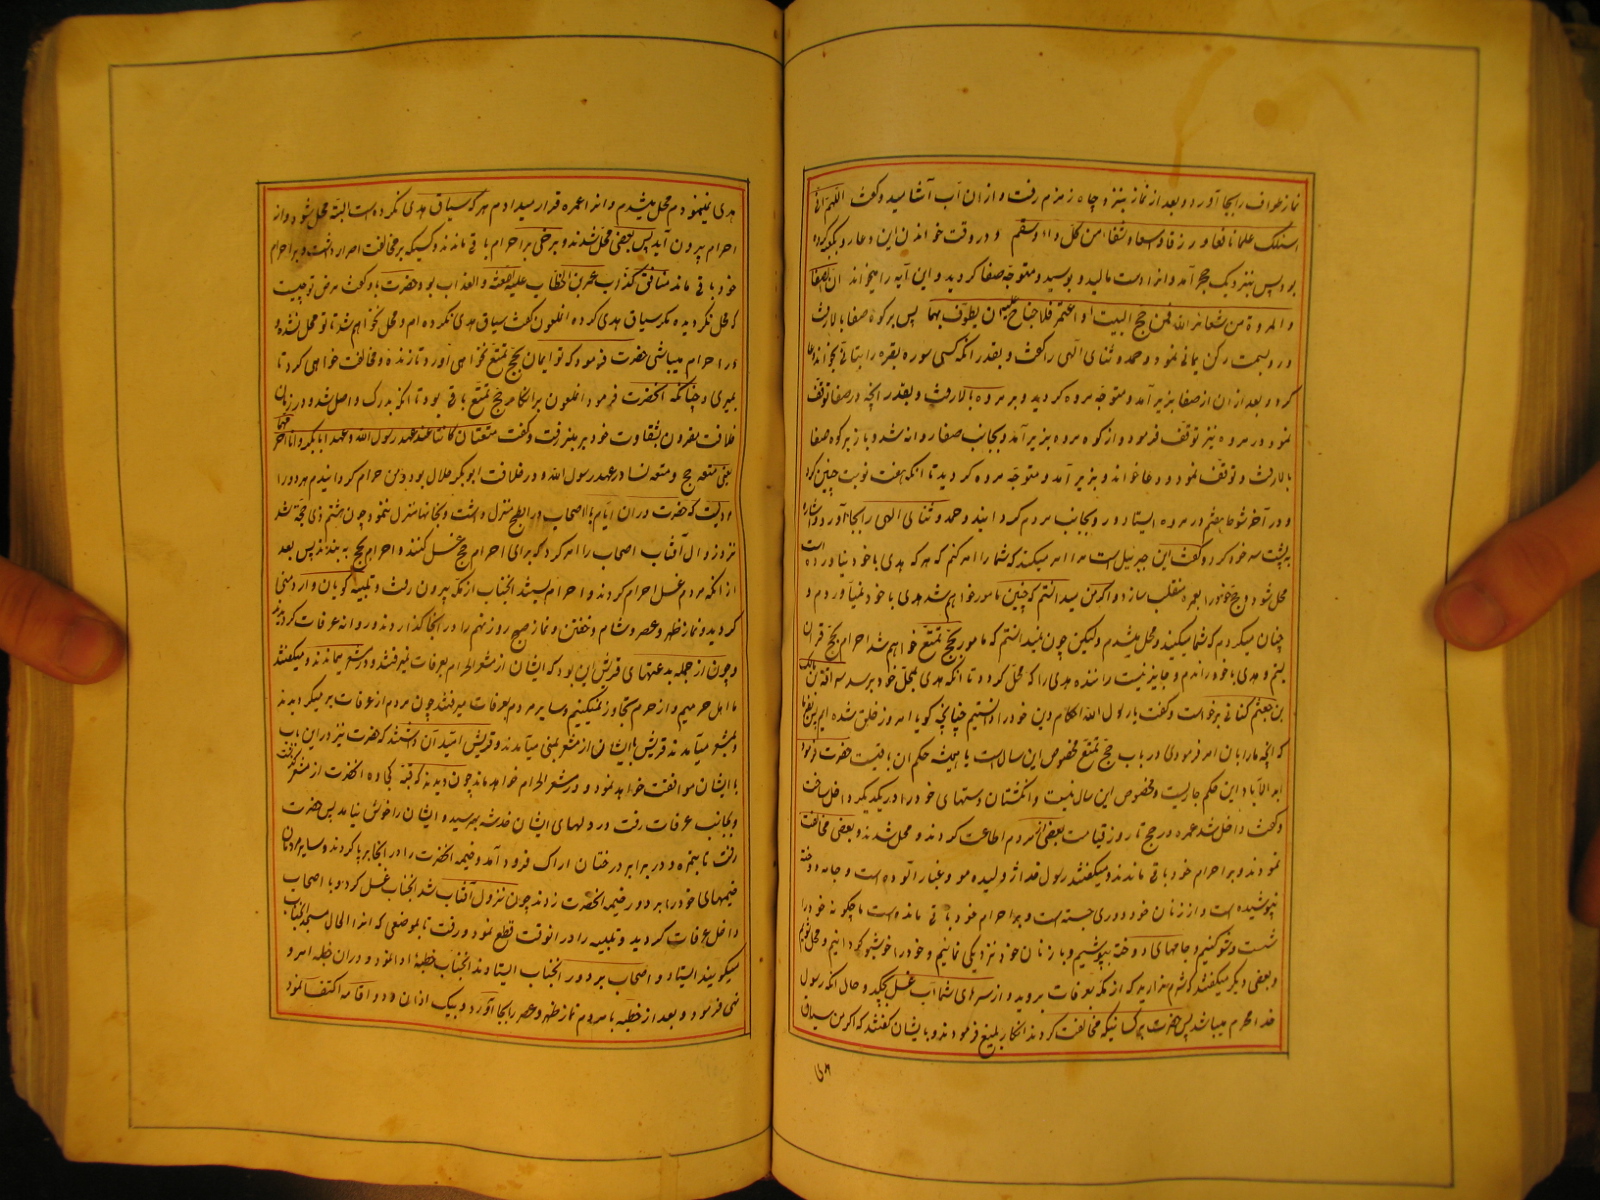 نماز طواف را بجا آورد و بعد از نماز بنزد چاه زمزم رفت و از ان آب آشامید و گفت اللهم انی
اسئلک علما نافعا و رزقا واسعا و شفاء من کل داء و سقم و در وقت خواندن این دعا رو بکعبه کرده
بود پس بنزدیک حجر آمد و انرا دست مالید و بوسید و متوجه صفا گردید و این آیه را میخواند ان الصفا
و المروة من شعائر الله فمن حج البیت او اعتمر فلا جناح علیه ان یطوف بهما پس بر کوه صفا بالا رفت
و رو بسمت رکن یمانی نمود و حمد و ثنای الهی را گفت و بقدر انکه کسی سوره بقره را بتانی بخواند دعا
کرد و بعد از ان از صفا بزیر آمد و متوجه مروه گردید و بر مروه بالا رفت و بقدر انچه در صفا توقف
نمود در مروه نیز توقف فرمود و از کوه مروه بزیر آمد و بجانب صفا روانه شد و باز بر کوه صفا
بالا رفت و توقف نمود و دعا خواند و بزیر آمد و متوجه مروه گردید تا انکه هفت نوبت چنین کرد
و در آخر شوط هفتم در مروه ایستاد و رو بجانب مردم گردانید و حمد و ثنای الهی را بجا آورد و اشاره
به پشت سر خود کرد و گفت این جبرئیل است مرا امر میکند که شما را امر کنم که هر که هدی با خود نیاورده است
محل شود و حج خود را بعمره منقلب سازد و اگر من میدانستم که چنین مامور خواهم شد هدی با خود نمیآوردم و
چنان میکردم که شما میکنید و محل میشدم ولیکن چون نمیدانستم که مامور بحج تمتع خواهم شد احرام بحج قران
بستم و هدی با خود راندم و جایز نیست راننده هدی را که محل گردد تا انکه هدی بمحل خود برسد سراقة بن مالک
بن جعثم کنانی برخاست و گفت یا رسول الله احکام دین خود را دانستیم چنانچه گویا امروز خلق شده ایم بفرما
که انچه ما را بان امر فرمودی در باب حج تمتع مخصوص این سال است یا همیشه حکم ان باقیست حضرت فرمود
ابد الآباد این حکم جاریست و مخصوص این سال نیست و انگشتان دستهای خود را در یکدیگر داخل ساخت
و گفت داخل شد عمره در حج تا روز قیامت بعضی از مردم اطاعت کردند و محل شدند و بعضی مخالفت
نمودند و بر احرام خود باقی ماندند و میگفتند رسول خدا ژولیده مو و غبار آلوده است و جامه دوخته
نپوشیده است و از زنان خود دوری جسته است و بر احرام خود باقی مانده است ما چگونه خود را
شست و شو کنیم و جامهای دوخته بپوشیم و با زنان خود نزدیکی نمائیم و خود را خوشبو گردانیم و محل شویم
و بعضی دیگر میگفتند که شرم ندارید که از مکه بعرفات بروید و از سرهای شما آب غسل بچکد و حال انکه رسول
خدا محرم میباشد پس حضرت بر کسانیکه مخالفت کردند انکار بلیغ فرمودند و بایشان گفتند که اگر من سیاق
هدی
هدی نمینمودم محل میشدم و انرا عمره قرار میدادم هر که سیاق هدی نکرده است البته محل شود و از
احرام بیرون آید پس بعضی محل شدند و برخی بر احرام باقی ماندند و کسیکه بر مخالفت اصرار داشت و بر احرام
خود باقی ماند منافق کذاب عمر بن الخطاب علیه اللعنة و العذاب بود حضرت باو گفت مرض تو چیست
که محل نگردیده مگر سیاق هدی کرده انملعون گفت سیاق هدی نکرده ام و محل نخواهم شد تا تو محل نشده و
در احرام میباشی حضرت فرمود که تو ایمان بحج تمتع نخواهی آورد تا زنده و مخالفت خواهی کرد تا
بمیری و چنانکه انحضرت فرمود انملعون بر انکار حج تمتع باقی بود تا انکه بدرک واصل شد و در زمان
خلافت مقرون بشقاوت خود بر منبر رفت و گفت متعتان کانتا عند عهد رسول الله و عهد ابابکر و انا احرمهما
یعنی متعه حج و متعه نسا در عهد رسول الله و در خلافت ابو بکر حلال بود و من حرام گردانیدم هر دو را
مرویست که حضرت دران ایام با اصحاب در ابطح منزل داشت و بخانها منزل ننمود چون هشتم ذی حجه شد
نزد زوال آفتاب اصحاب را امر کرد که برای احرام حج غسل کنند و احرام بحج به بندند پس بعد
از انکه مردم غسل احرام کردند و احرام بستند انجناب از مکه بیرون رفت و تلبیه گویان وارد منی
گردید و نماز ظهر و عصر و شام و خفتن و نماز صبح روز نهم را در انجا گذارد و روانه عرفات گردید
و چون از جمله بدعتهای قریش این بود که ایشان از مشعر الحرام بعرفات نمیرفتند و در مشعر میماندند و میگفتند
ما اهل حرمیم و از حرم تجاوز نمیکنیم و سایر مردم بعرفات میرفتند چون مردم از عرفات بر میگردیدند
و بمشعر میآمدند قریش با ایشان از مشعر بمنی میآمدند و قریش امید آن داشتند که حضرت نیز در این باب
با ایشان موافقت خواهد نمود و در مشعر الحرام خواهد ماند چون دیدند که قبه کجاوه انحضرت از مشعر گذشت
و بجانب عرفات رفت در دلهای ایشان خدشه بهم رسید و ایشان را خوش نیامد پس حضرت
رفت تا بنمره و در برابر درختان اراک فرود آمد و خیمه انحضرت را در انجا بر پا کردند و سایر مردمان
خیمهای خود را بر دور خیمه انحضرت زدند چون نزد زوال آفتاب شد انجناب غسل کرد و با اصحاب
داخل عرفات گردید و تلبیه را در انوقت قطع نمود و رفت تا بموضعی که انرا الحال مسجد انجناب
میگویند ایستاد و اصحاب بر دور انجناب ایستادند انجناب خطبه ادا نمود و دران خطبه امر و
نهی فرمود و بعد از خطبه با مردم نماز ظهر و عصر را بجا آورد و بیک اذان و دو اقامه اکتفا نمود